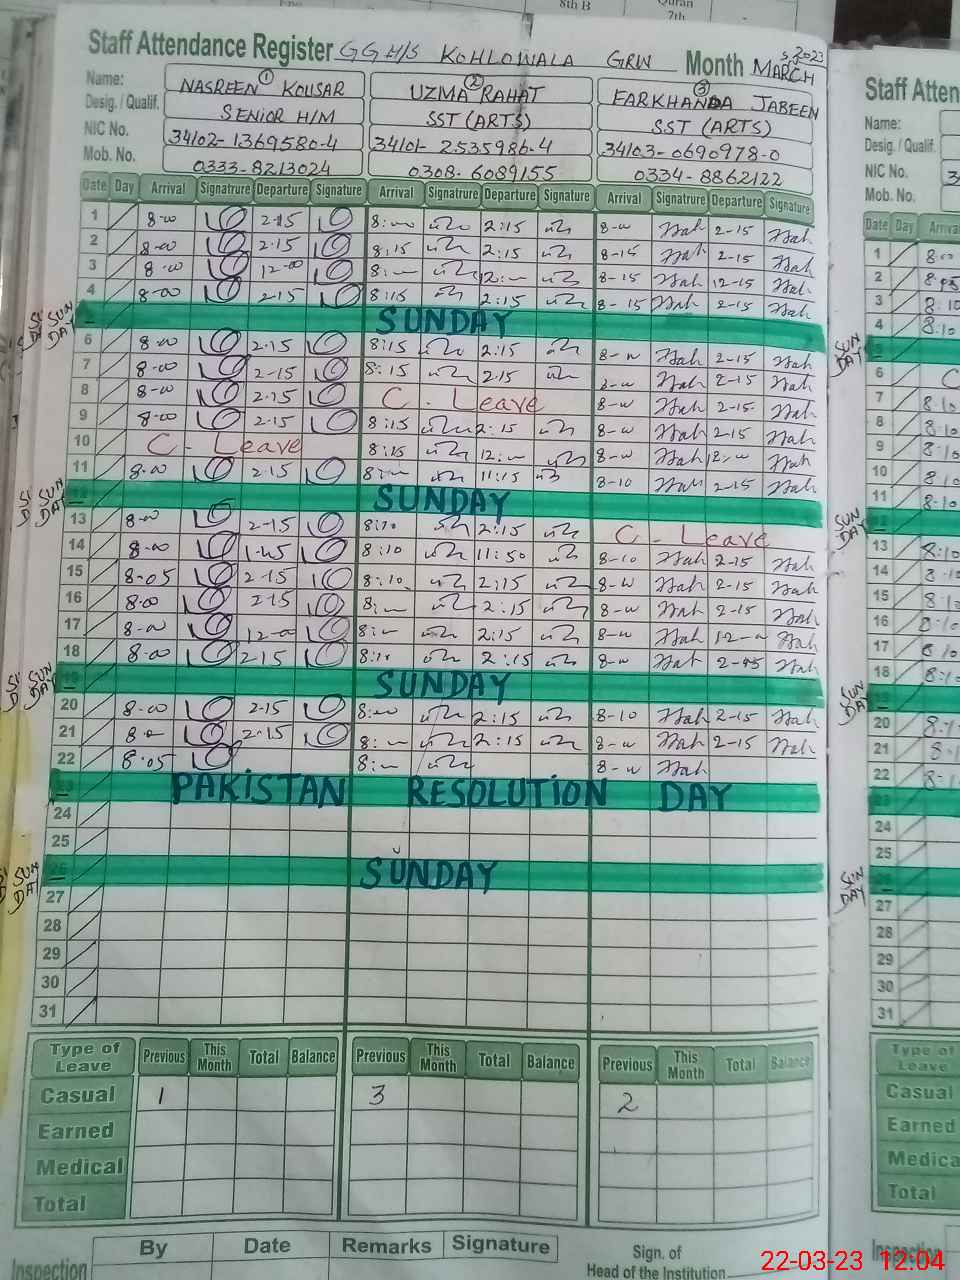 8th B
Quran
7th
Staff Attendance Register GGH/S KOHLOWALA GRW Month MARCH 2023
Name: NASREEN ① KOUSAR UZMA ② RAHAT FARKHANDA ③ JABEEN
Desig. / Qualif. SENIOR H/M SST (ARTS) SST (ARTS)
NIC No. 34102-1369580-4 34101-2535986-4 34103-0690978-0
Mob. No. 0333-8213024 0308-6089155 0334-8862122
Date Day Arrival Signatrure Departure Signature Arrival Signatrure Departure Signature Arrival Signatrure Departure Signature
1 8-00 2-15 8:00 2:15 8-00 2-15
2 8-00 2-15 8:15 2:15 8-15 2-15
3 8-00 12-00 8:00 12:00 8-15 12-15
4 8-00 2-15 8:15 2:15 8-15 2-15
SUN DAY SUNDAY
6 8-00 2-15 8:15 2:15 8-00 2-15
7 8-00 2-15 8:15 2:15 8-00 2-15
8 8-00 2-15 C - Leave 8-00 2-15
9 8-00 2-15 8:15 2:15 8-00 2-15
10 C - Leave 8:15 12:00 8-00 12-00
11 8-00 2-15 8:00 11:15 8-10 2-15
SUN DAY 12 SUNDAY
13 8-00 2-15 8:10 2:15 C - Leave
14 8-00 1-45 8:10 11:50 8-10 2-15
15 8-05 2-15 8:10 2:15 8-00 2-15
16 8-00 2-15 8:00 2:15 8-00 2-15
17 8-00 12-00 8:00 2:15 8-00 12-00
18 8-00 2-15 8:10 2:15 8-00 2-15
SUN DAY 19 SUNDAY
20 8-00 2-15 8:00 2:15 8-10 2-15
21 8-0 2-15 8:00 2:15 8-00 2-15
22 8-05 8:00 8-00
23 PAKISTAN RESOLUTION DAY
24
25
SUN DAY 26 SUNDAY
27
28
29
30
31
Type of Leave Previous This Month Total Balance Previous This Month Total Balance Previous This Month Total Balance
Casual 1 3 2
Earned
Medical
Total
By Date Remarks Signature
Inspection
Sign. of
Head of the Institution
Staff Atten
Name:
Desig. / Qualif.
NIC No.
Mob. No.
Date Day Arriva
1 8:00
2 8:05
3 8:10
4 8:10
SUN DAY
6 C
7 8:10
8 8:10
9 8:10
10 8:10
11 8:10
SUN DAY
13 8:10
14 8:10
15 8:10
16 8:10
17 8:10
18 8:10
SUN DAY
20
21
22
24
25
SUN DAY
27
28
29
30
31
Type of Leave
Casual
Earned
Medica
Total
22-03-23 12:04